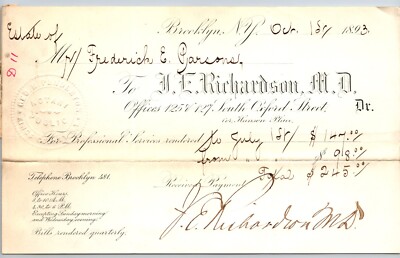 Brooklyn, N.Y. Oct. 1st 1893
Estate of
Mr Frederick E. Parsons
D 11
To J. E. Richardson, M.D. Dr.
Offices 125 & 127 South Oxford Street,
Cor. Hanson Place.
For Professional Services rendered to July 1st $ 147.00
from " " 98.00
Telephone Brooklyn 381.
Received Payment $ 245.00
Office Hours
8 to 10 A.M.
Excepting Sunday evening
and Wednesday evening.
Bills rendered quarterly.
J. E. Richardson M.D.